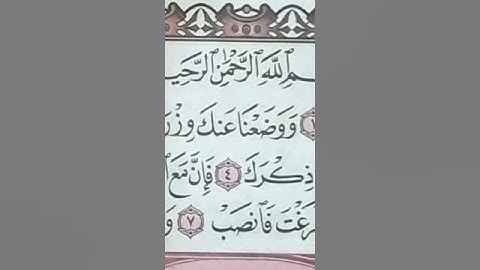 ـمِ ٱللَّهِ ٱلرَّحْمَٰنِ ٱلرَّحِيـ
١ وَوَضَعْنَا عَنكَ وِزْرَ
ذِكْرَكَ ٤ فَإِنَّ مَعَ ٱ
رَغْتَ فَٱنصَبْ ٧ وَ